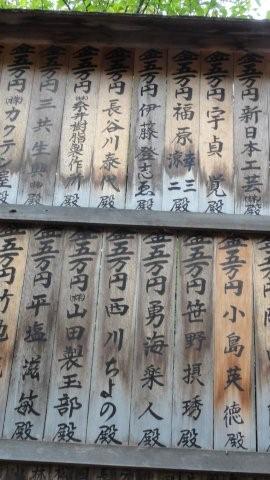 金五万円 新日本工芸㈱殿
金五万円 宇貞覚殿
金五万円 福原 幸三 涼二 殿
金五万円 伊藤登志ゑ殿
金五万円 長谷川泰代殿
金五万円 ㈱桑井樹脂製作所殿
金五万円 三共生興㈱殿
金五万円 ㈱カクテン屋殿
金五万円 小島英徳殿
金五万円 笹野摂琇殿
金五万円 勇海楽人殿
金五万円 西川ちよの殿
金五万円 ㈱山田製玉部殿
金五万円 平塩滋敏殿